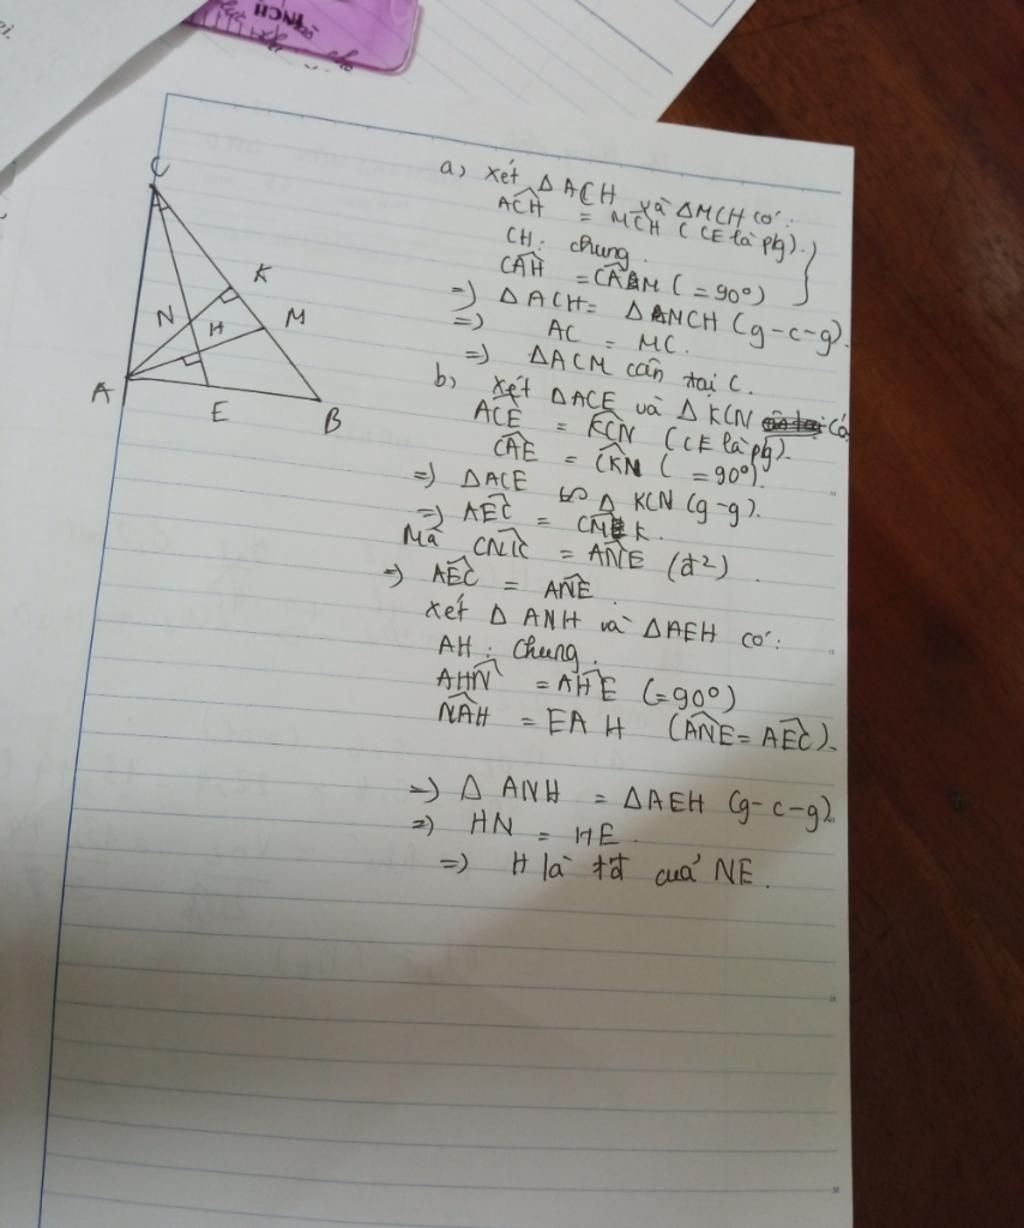 C
K
N
H
M
A
E
B
a, xét Δ ACH và ΔMCH có:
ACH = MCH (CE là pg).
CH: chung.
CAH = CAM (=90°)
=) Δ ACH = Δ MCH (g-c-g).
=) AC = MC.
=) ΔACM cân tại C.
b, xét ΔACE và Δ KCN có
ACE = KCN (CE là pg).
CAE = CKN (=90°).
=) ΔACE ∽ Δ KCN (g-g).
=) AEC = CNK.
Mà CNK = ANE (đ²).
=) AEC = ANE.
xét Δ ANH và ΔAEH có:
AH: chung.
AHN = AHE (=90°)
NAH = EAH (ANE = AEC).
=) Δ ANH = ΔAEH (g-c-g).
=) HN = HE.
=) H là tđ cuả NE.